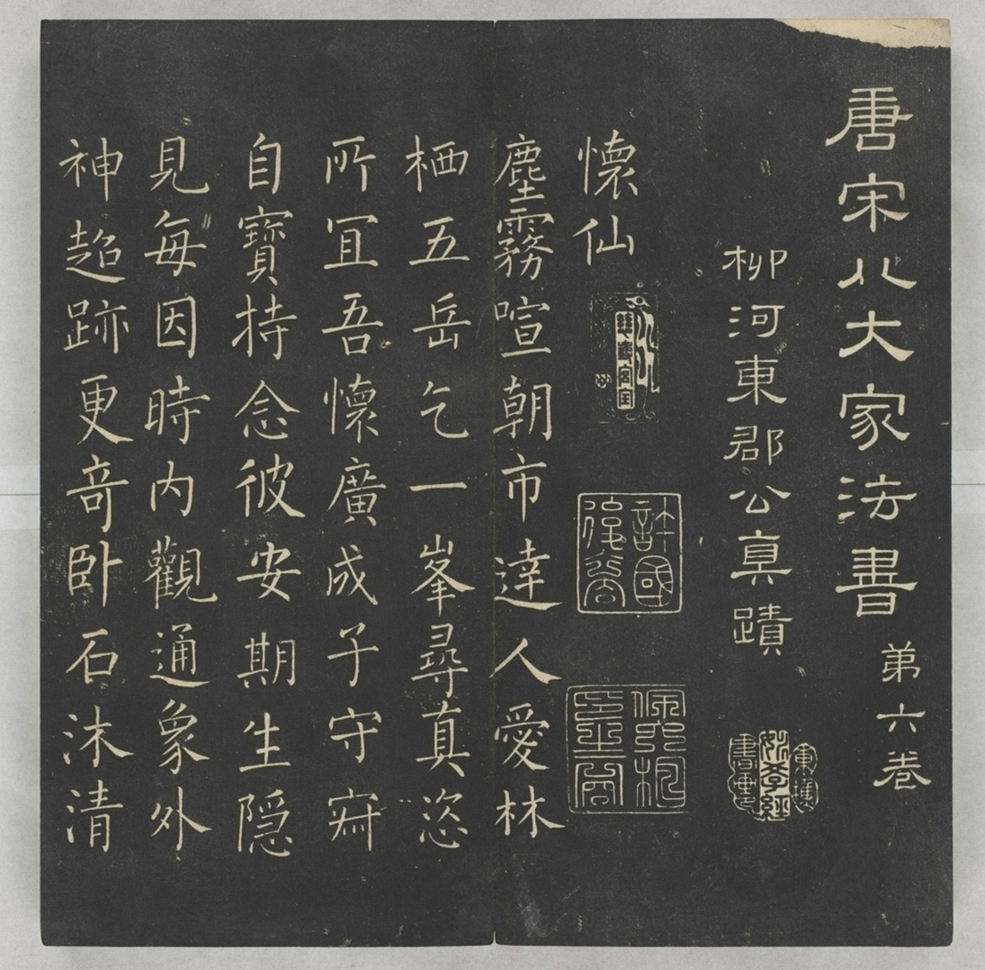 唐宋八大家法書 第六卷
柳河東郡公真蹟
懷仙
塵霧喧朝市達人愛林
栖五岳乞一峯尋真恣
所冝吾懷廣成子守
自寶持念彼安期生隱
見每因時内觀通象外
神超跡更竒卧石沫清